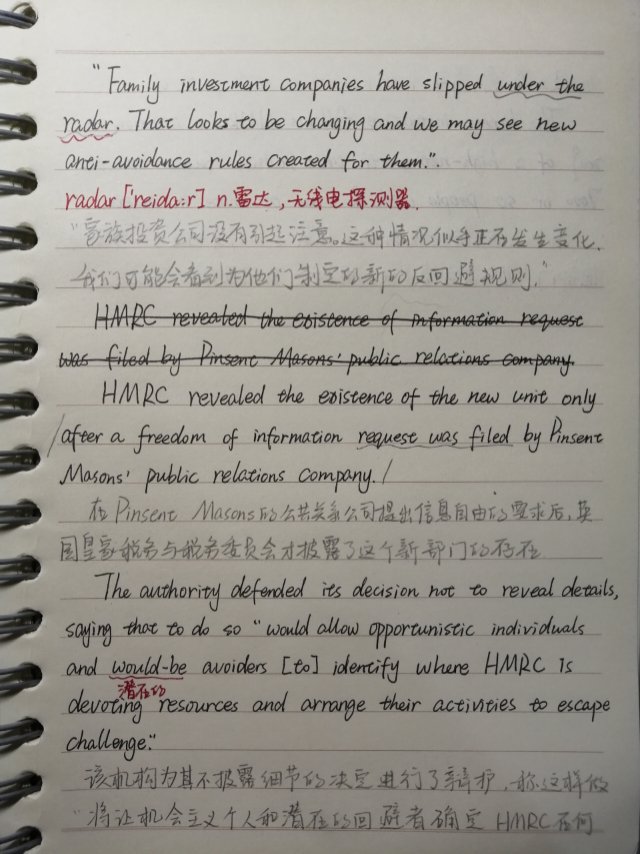 "Family investment companies have slipped under the
radar. That looks to be changing and we may see new
anti-avoidance rules created for them.".
radar ['reida:r] n.雷达,无线电探测器.
"家族投资公司没有引起注意。这种情况似乎正在发生变化.
我们可能会看到为他们制定的新的反回避规则."
HMRC revealed the existence of information request
was filed by Pinsent Masons' public relations company.
HMRC revealed the existence of the new unit only
/after a freedom of information request was filed by Pinsent
Masons' public relations company./
在Pinsent Masons的公共关系公司提出信息自由的要求后,英
国皇家税务与税务委员会才披露了这个新部门的存在
The authority defended its decision not to reveal details,
saying that to do so "would allow opportunistic individuals
and would-be avoiders [to] identify where HMRC is
潜在的
devoting resources and arrange their activities to escape
challenge."
该机构为其不披露细节的决定进行了辩护,称这样做
"将让机会主义个人和潜在的回避者确定HMRC在何